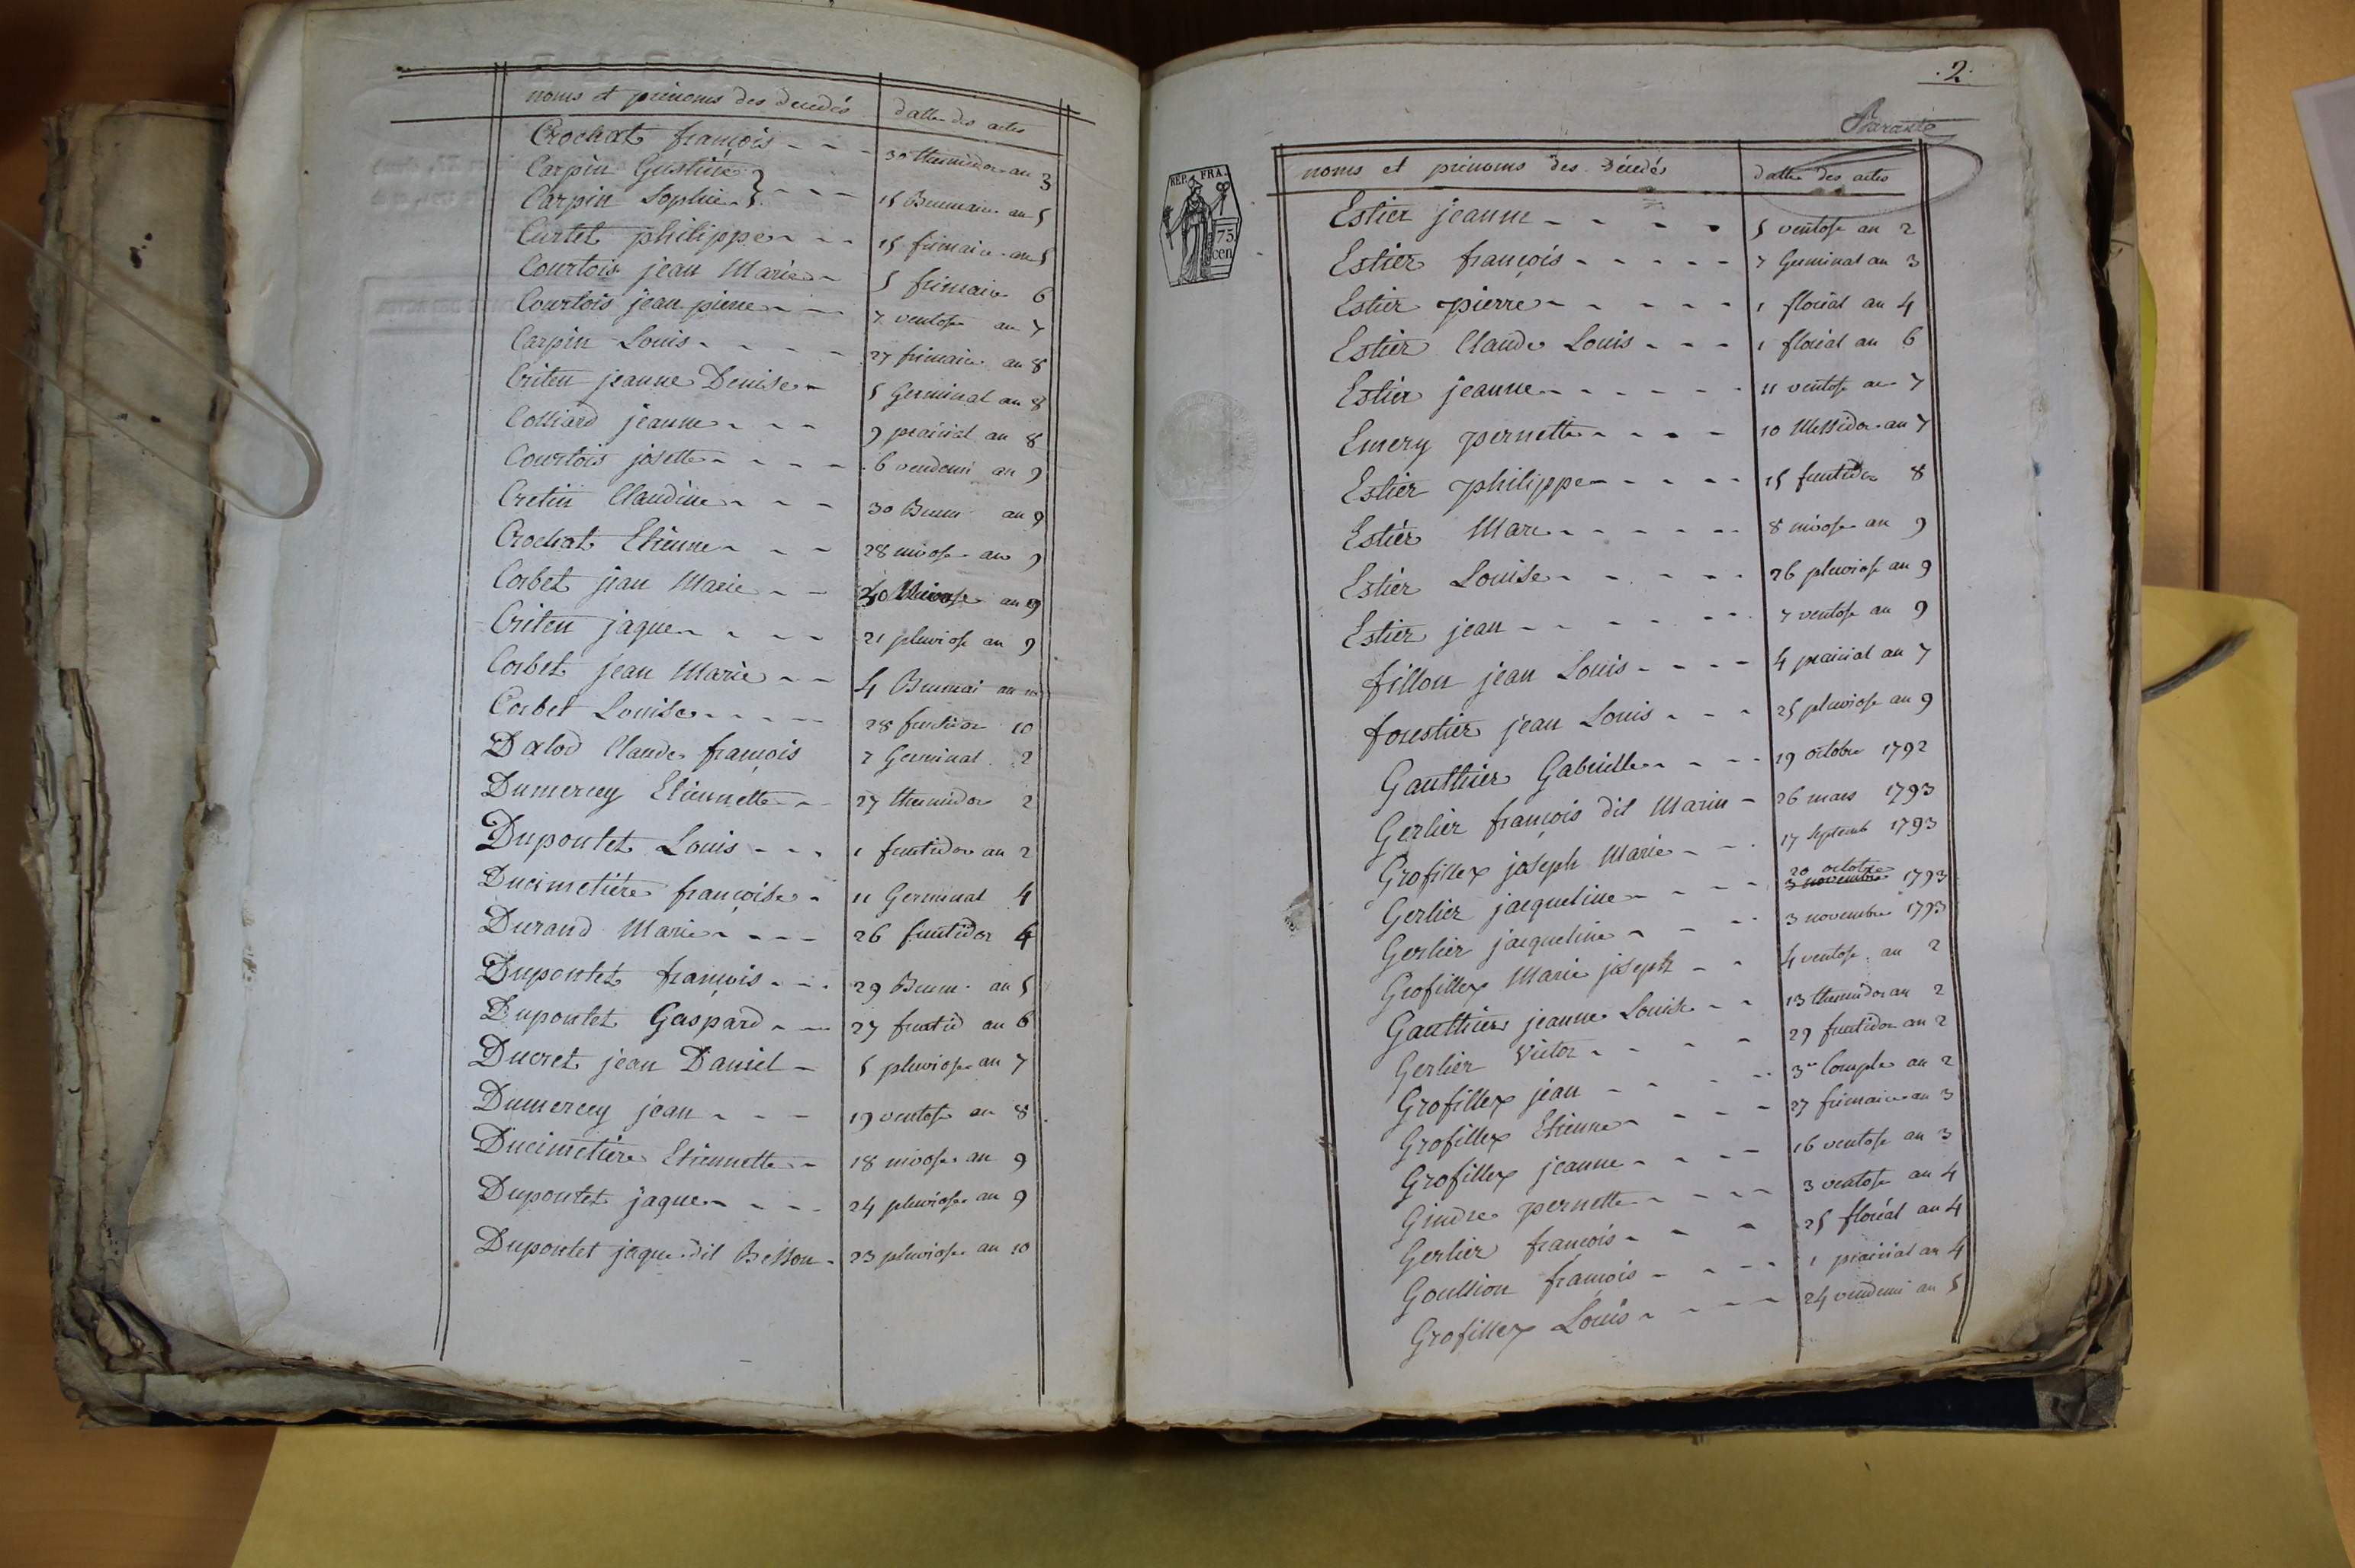 noms et prénoms des décédés datte des actes
Crochat françois - - - 30 thermidor an 3
Carpin Gustine
Carpin Sophie - - - 15 Brumaire an 5
Curtet philippe - - - 15 frimaire an 5
Courtois jean Marie - 5 frimaire 6
Courtois jean pierre - - 7 ventose an 7
Carpin Louis - - - - - 27 frimaire an 8
Criten jeanne Denise - 5 Germinal an 8
Colliard jeanne - - - 9 prairial an 8
Courtois josette - - - - 6 vendemi an 9
Cretin Claudine - - - 30 Brum an 9
Crochat Etienne - - - 28 nivose an 9
Corbet jean Marie - - 30 Nivose an 9
Criten jaque - - - - 21 pluviose an 9
Corbet jean Marie - - 4 Brumai an 10
Corbet Louise - - - - 28 fructidor 10
Dalod Claude françois 7 Germinal 2
Dumercey Etiennette - - 27 thermidor 2
Dupontet Louis - - - 1 fructidor an 2
Ducimetiére françoise - 11 Germinal 4
Durand Marie - - - - 26 fructidor 4
Dupontet françois - - - 29 Brum. an 5
Dupontet Gaspard - - 27 fructid an 6
Ducret jean Daniel - 5 pluviose an 7
Dumercey jean - - - 19 ventose an 8
Ducimetiére Etiennette - 18 nivose an 9
Dupontet jaque - - - - 24 pluviose an 9
Dupontet jaque dit Besson - 23 pluviose an 10
.2.
REP. FRA.
75
cen
noms et prénoms des décédés datte des actes
Estier jeanne - - - - 5 ventose an 2
Estier françois - - - - - 7 Germinal an 3
Estier pierre - - - - - 1 floréal an 4
Estier Claude Louis - - - 1 floréal an 6
Estier jeanne - - - - - - 11 ventose an 7
Emery pernette - - - - 10 Messidor an 7
Estier philippe - - - - - 15 fructidor 8
Estier Marc - - - - - - 8 nivose an 9
Estier Louise - - - - - 26 pluviose an 9
Estier jean - - - - - - 7 ventose an 9
fillon jean Louis - - - - 4 prairial an 7
forestier jean Louis - - - 25 pluviose an 9
Gauthier Gabrielle - - - - 19 octobre 1792
Gerlier françois dit Marin - 26 mars 1793
Grofillex joseph Marie - - - 17 Septemb 1793
20 octobre
Gerlier jacqueline - - - - 3 novembre 1793
Gerlier jacqueline - - - - 3 novembre 1793
Grofillex Marie joseph - - 4 ventose an 2
Gauthier jeanne Louise - - 13 thermidor an 2
Gerlier Victor - - - - - 29 fructidor an 2
Grofillex jean - - - - - 3me Comple an 2
Grofillex Etienne - - - - 27 frimaire an 3
Grofillex jeanne - - - - 16 ventose an 3
Gindre pernette - - - - 3 ventose an 4
Gerlier françois - - - 25 floréal an 4
Goullion françois - - - - 1 prairial an 4
Grofillex Louis - - - - 24 vendemi an 5